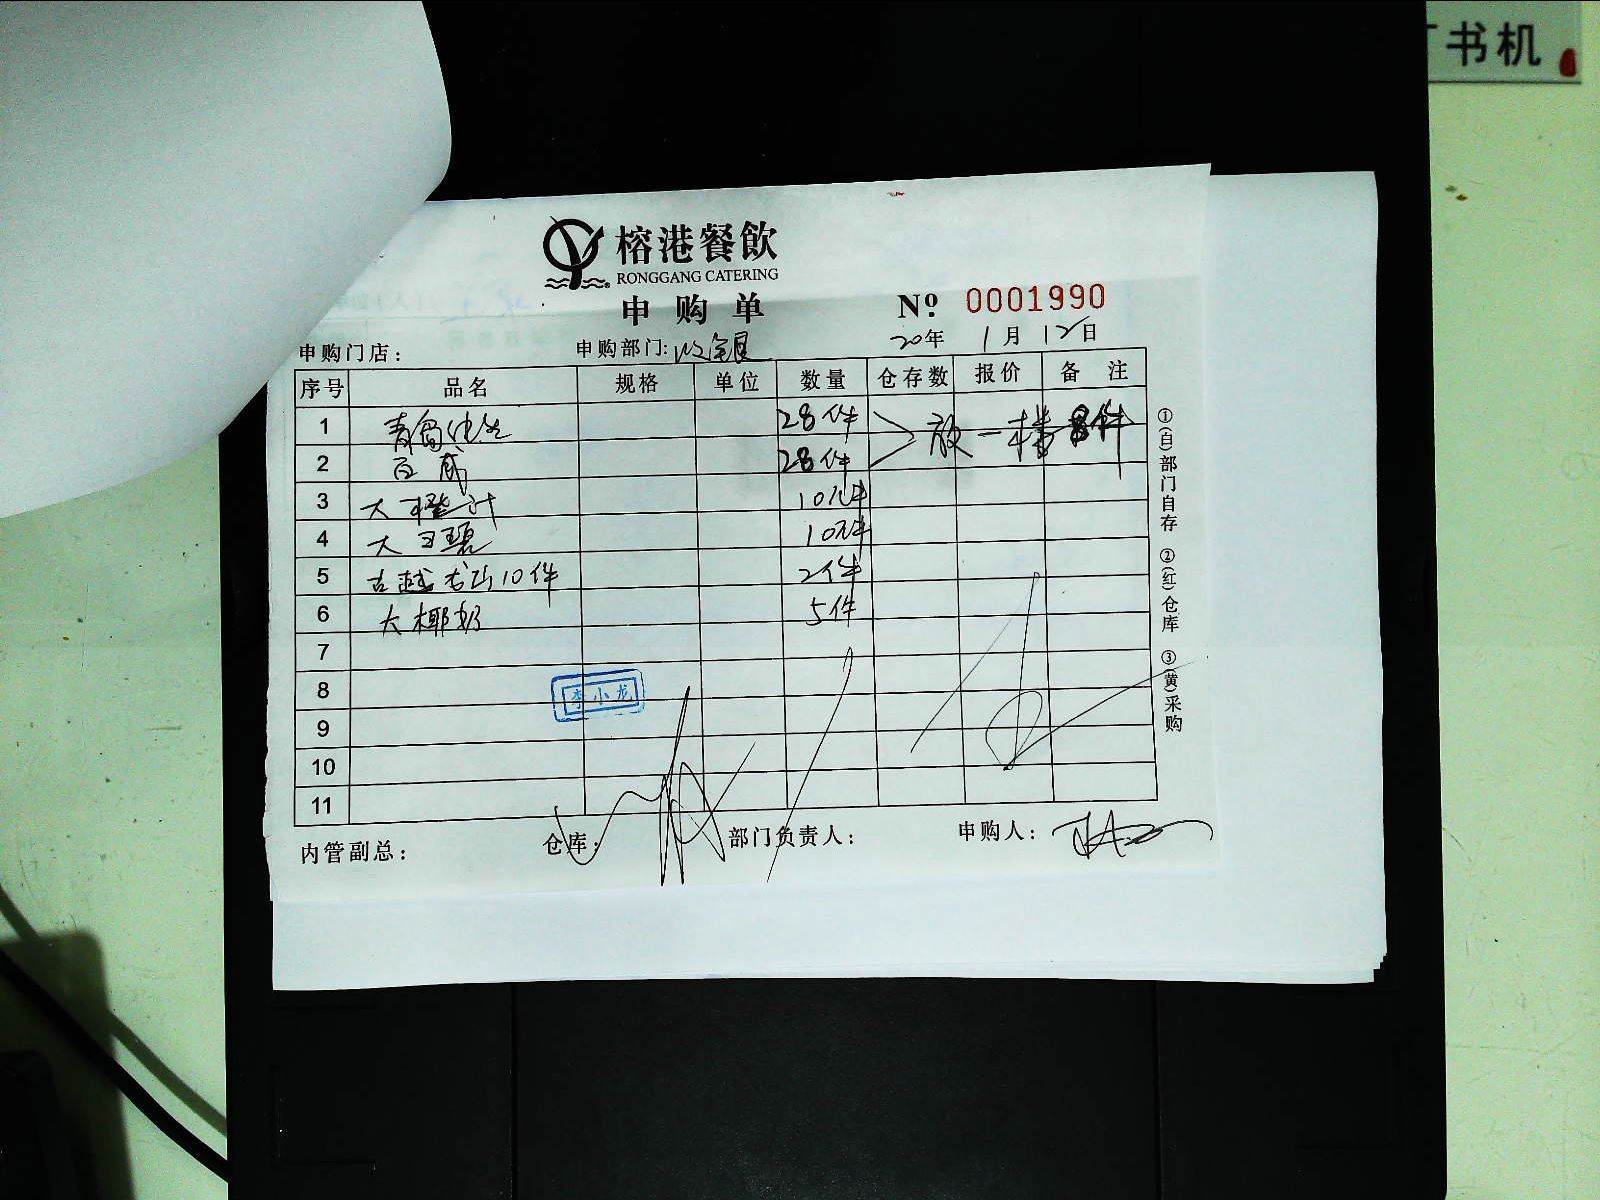 书机
榕港餐飲
RONGGANG CATERING
申购单
Nº: 0001990
申购门店: 申购部门: 收银 20年 1月 12日
序号 品名 规格 单位 数量 仓存数 报价 备注
1 青岛纯生 28件 放一楼8件
2 百威 28件
3 大橙汁 10件
4 大王碧 10件
5 古越龙山10件 2件
6 大椰奶 5件
7
8 李小龙
9
10
11
内管副总: 仓库: 部门负责人: 申购人:
①(白)部门自存 ②(红)仓库 ③(黄)采购